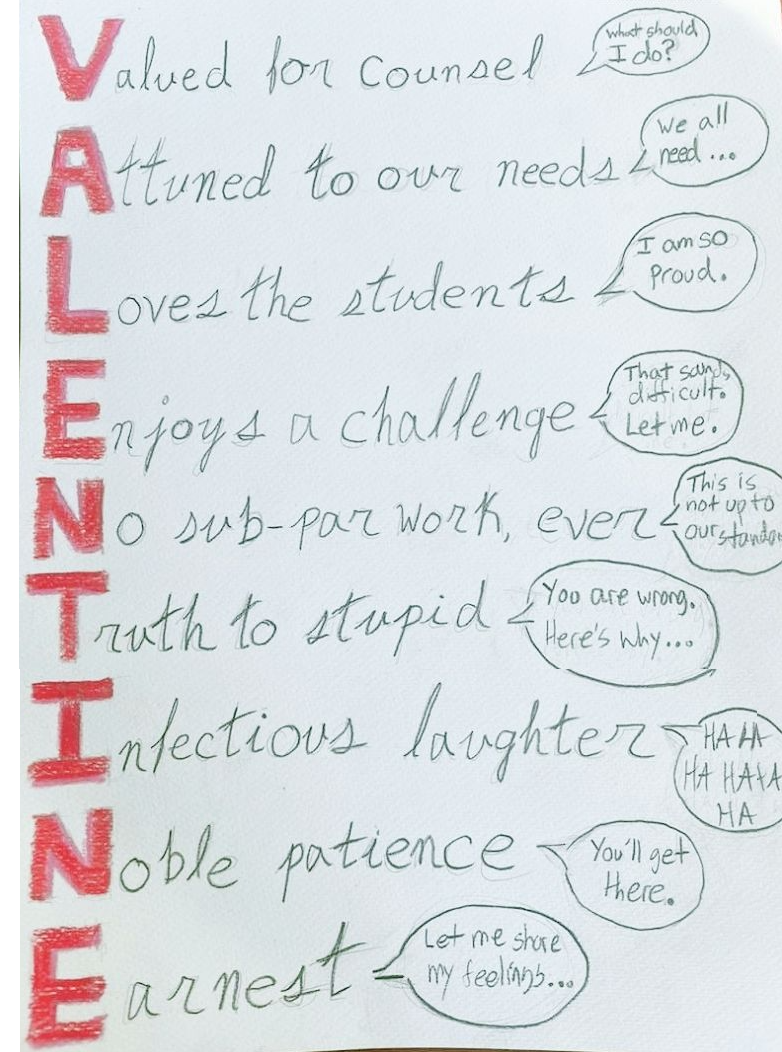 Valued for Counsel
What should
I do?
Attuned to our needs
We all
need ...
Loves the students
I am so
Proud.
Enjoys a challenge
That sounds
difficult.
Let me.
No sub-par work, ever
This is
not up to
our
Truth to stupid
You are wrong.
Here's Why...
Infectious laughter
HA HA
HA HA HA
HA
Noble patience
You'll get
there.
Earnest
Let me share
my feelings...